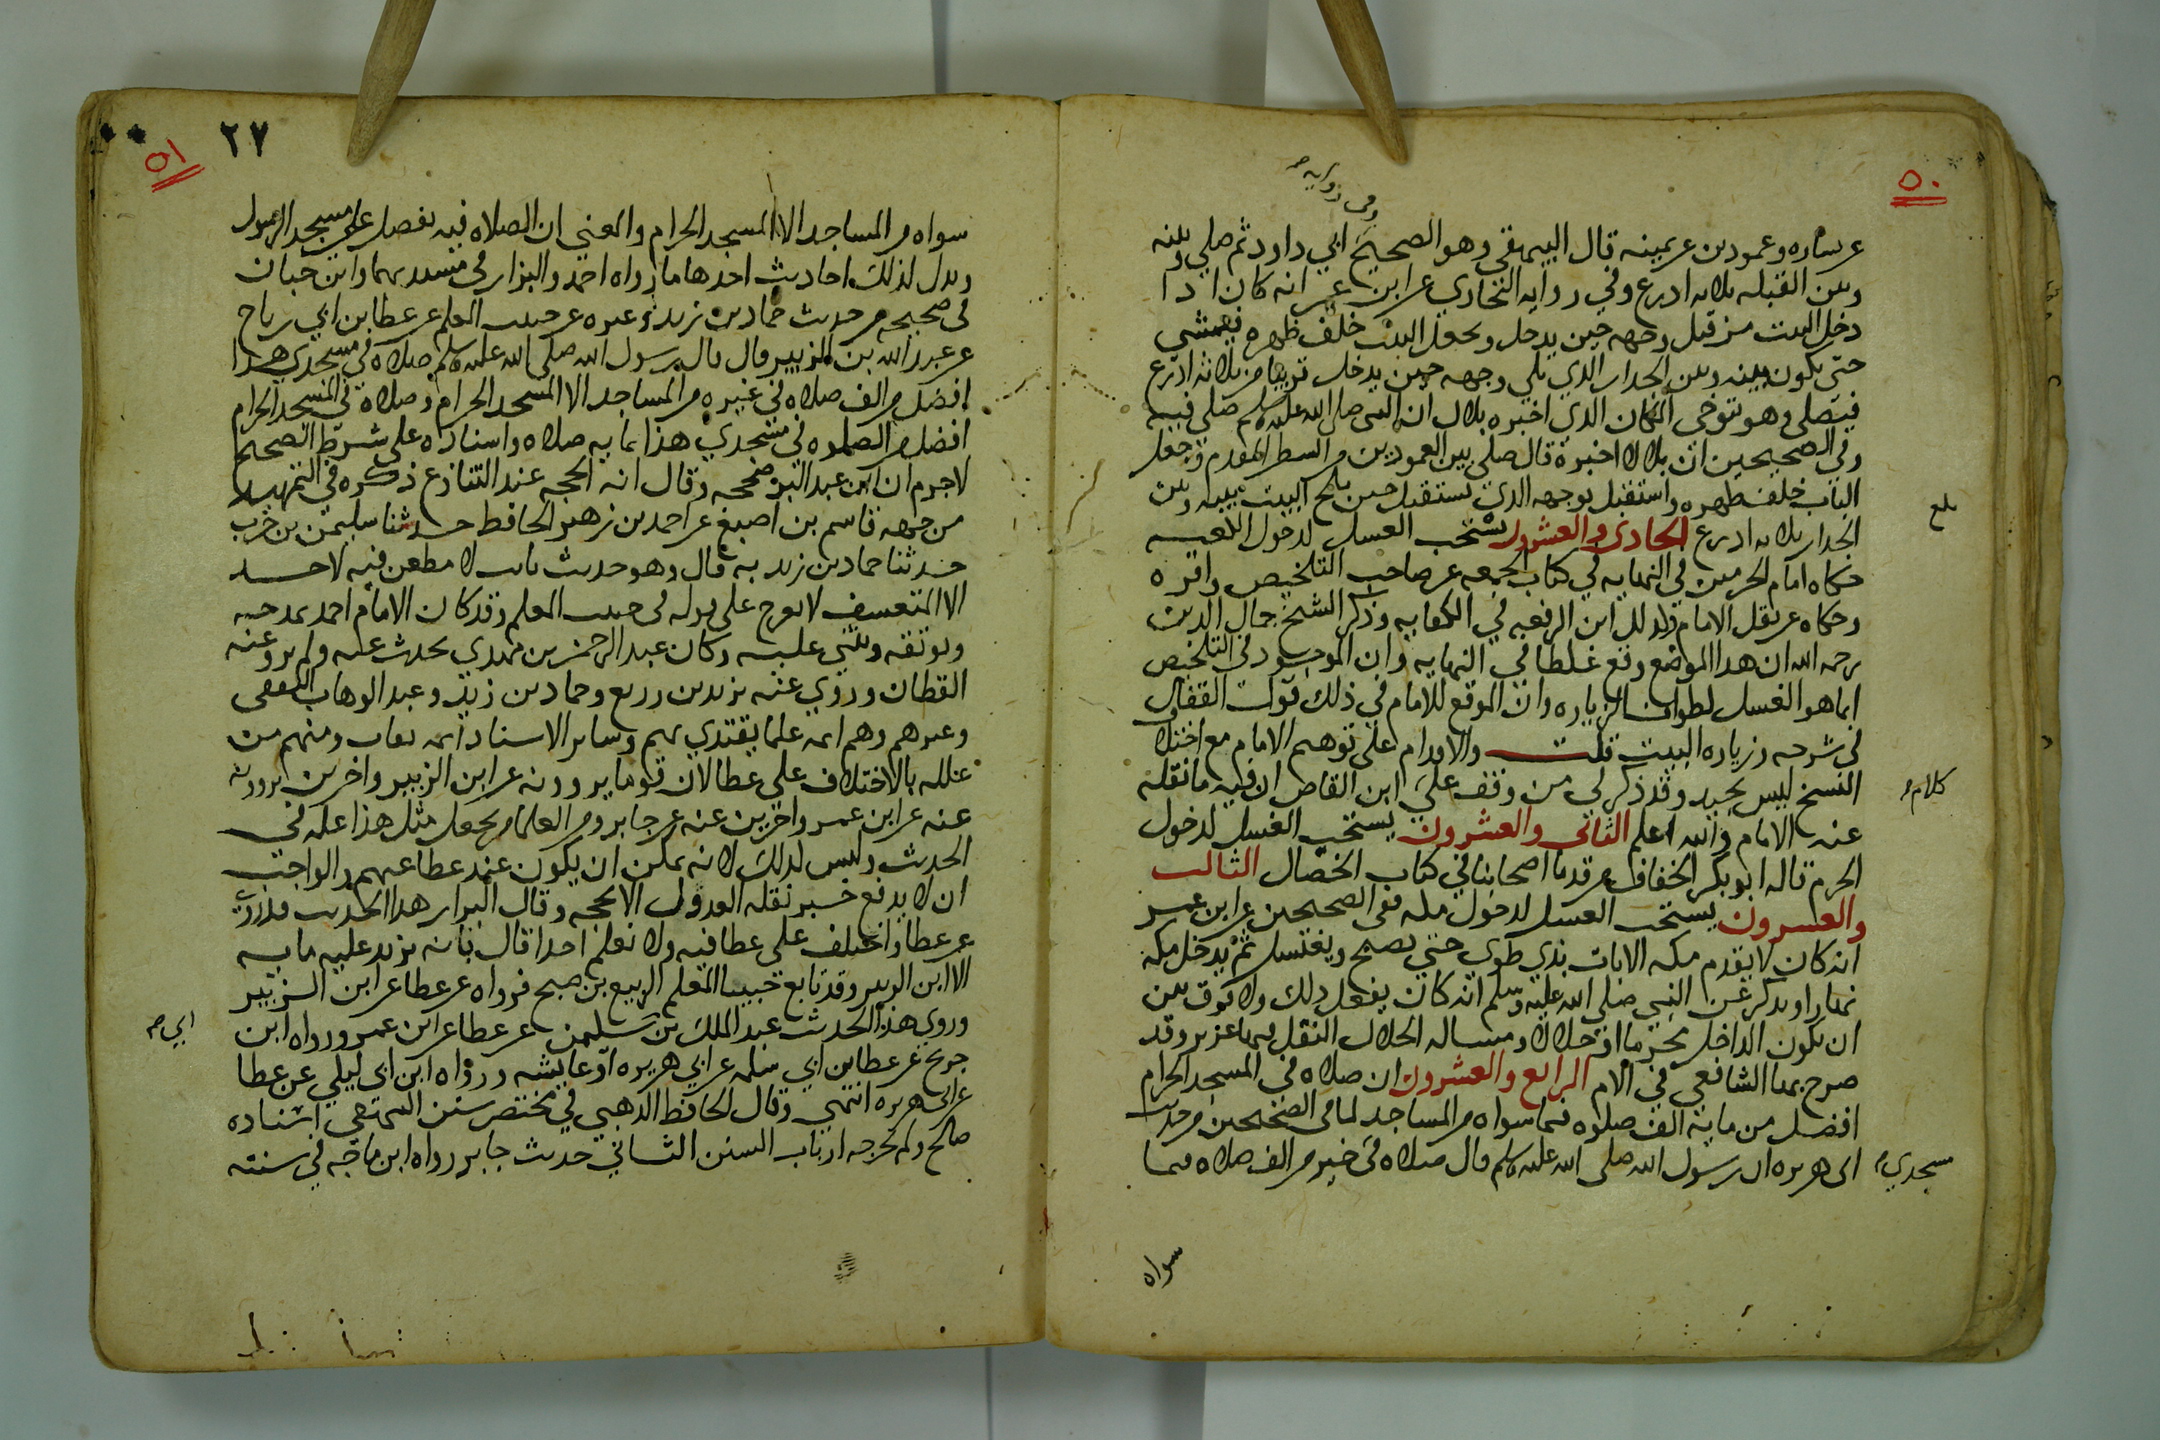 ٥٠
وفي رواية
عن يساره وعمودين عن يمينه قال البيهقي وهو الصحيح ابي داود ثم صلي بينه
وبين القبله ثلاثه ادرع وفي روايه البخاري عن ابن عمر انه كان اذا
دخل البيت من قبل وجهه حين يدخل ويجعل البيت خلف ظهره فيمشي
حتى يكون بينه وبين الجدار الذي يلي وجهه حين يدخل قريبا من ثلاثه اذرع
فيصلي وهو يتوخى المكان الذي اخبره بلال ان النبي صلى الله عليه وسلم صلى فيه
وفي الصحيحين ان بلالا اخبره قال صلى بين العمودين من السطر المقدم وجعل
الباب خلف ظهره واستقبل بوجهه الذي يستقبل حين يلج البيت بينه وبين
الجدار ثلاثه ادرع الحادي والعشرون يستحب الغسل لدخول الكعبه
حكاه امام الحرمين في النهايه في كتاب الجمعه عن صاحب التلخيص واقره
وحكاه عن نقل الامام ابن الرفعه في الكفايه وذكر الشيخ جمال الدين
رحمه الله ان هذا الموضع وقع غلطا في النهايه وان الموجود في التلخيص
انما هو الغسل لطواف الزياره وان الموقع للامام في ذلك قول القفال
في شرحه وزياره البيت قلت والاقدام على توهيم الامام مع اختلاف
النسخ ليس بجيد وقد ذكر لي من وقف علي ابن القاص ان فيه ما نقله
كلام
عنه الامام والله اعلم الثاني والعشرون يستحب الغسل لدخول
الحرم قاله ابو بكر الخفاف من قدما اصحابنا في كتاب الخصال الثالث
والعشرون يستحب الغسل لدخول مكه ففي الصحيحين عن ابن عمر
انه كان لا يقدم مكه الا بات بذي طوى حتى يصبح ويغتسل ثم يدخل مكه
نهارا ويذكر عن النبي صلى الله عليه وسلم انه كان يفعل ذلك ولا فرق بين
ان يكون الداخل محرما او حلالا ومساله الحلال النقل فيها عزيز وقد
صرح بها الشافعي في الام الرابع والعشرون ان صلاه في المسجد الحرام
افضل من مايه الف صلوه فيما سواه من المساجد لما في الصحيحين من حديث
ابي هريره ان رسول الله صلى الله عليه وسلم قال صلاه في خير من الف صلاه فيما
مسجدي
سواه
٥١
٢٧
سواه من المساجد الا المسجد الحرام والمعني ان الصلاه فيه تفضل على مسجد الرسول
ويدل لذلك احاديث احدها ما رواه احمد والبزار في مسنديهما وابن حبان
في صحيحه من حديث حماد بن زيد وغيره عن حبيب المعلم عن عطا بن ابي رباح
عن عبد الله بن الزبير قال قال رسول الله صلى الله عليه وسلم صلاة في مسجدي هذا
افضل من الف صلاه في غيره من المساجد الا المسجد الحرام وصلاة في المسجد الحرام
افضل من الصلوه في مسجدي هذا بمايه صلاه واسناده على شرط الصحيح
لا جرم ان ابن عبد البر صححه وقال انه الحجه عند التنازع ذكره في التمهيد
من جهه قاسم بن اصبغ عن احمد بن زهير الحافظ حدثنا سليمن بن حرب
حدثنا حماد بن زيد به قال وهو حديث ثابت لا مطعن فيه لاحد
الا لمتعسف لا يعرج على قوله في حبيب المعلم وقد كان الامام احمد يمدحه
ويوثقه ويثني عليه وكان عبد الرحمن بن مهدي يحدث عنه ولم يرو عنه
القطان وروي عنه يزيد بن زريع وحماد بن زيد وعبد الوهاب الثقفي
وغيرهم وهم ايمه علما يقتدي بهم وساير الاسناد ايمه ثقات ومنهم من
علله بالاختلاف على عطا لان قوما يروونه عن ابن الزبير واخرين يروونه
عنه عن ابن عمر واخرين عنه عن جابر ومن العلما من يجعل مثل هذا عله في
الحديث وليس كذلك لانه يمكن ان يكون عند عطا عنهم والواجب
ان لا يدفع خبر نقله العدول الا بحجه وقال البزار هذا الحديث قد روي
عن عطا واختلف على عطا فيه ولا نعلم احدا قال بانه يزيد عليه مايه
الا ابن الزبير وقد تابع حبيبا المعلم الربيع بن صبيح فرواه عن عطا عن ابن الزبير
وروى هذا الحديث عبد الملك بن سليمن عن عطا عن ابن عمر ورواه ابن
ابي
جريج عن عطا بن ابي سلمه عن ابي هريره او عايشه ورواه ابن ابي ليلي عن عطا
عن ابي هريره انتهي وقال الحافظ الذهبي في مختصر سنن البيهقي اسناده
صالح ولم يخرجه ارباب السنن الثاني حديث جابر رواه ابن ماجه في سننه